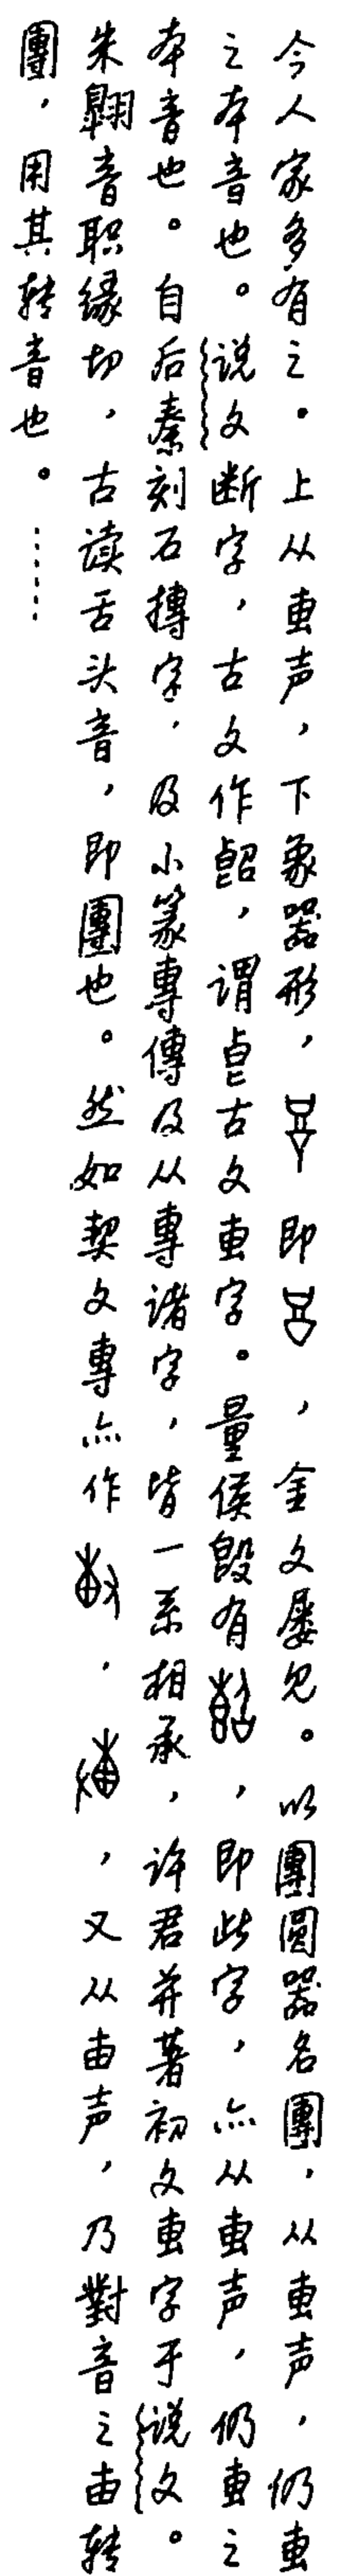 今人家多有之。上从叀声，下象器形，即，金文屡见。以團圆器名團，从叀声，仍叀
之本音也。说文断字，古文作㫁，谓𠧢古文叀字。量侯𣪘有，即此字，亦从叀声，仍叀之
本音也。自后秦刻石摶字，及小篆專傳及从專诸字，皆一系相承，许君并著初文叀字于说文。
朱翱音职缘切，古读舌头音，即團也。然如契文專亦作，又从由声，乃對音之由转
團，用其转音也。……